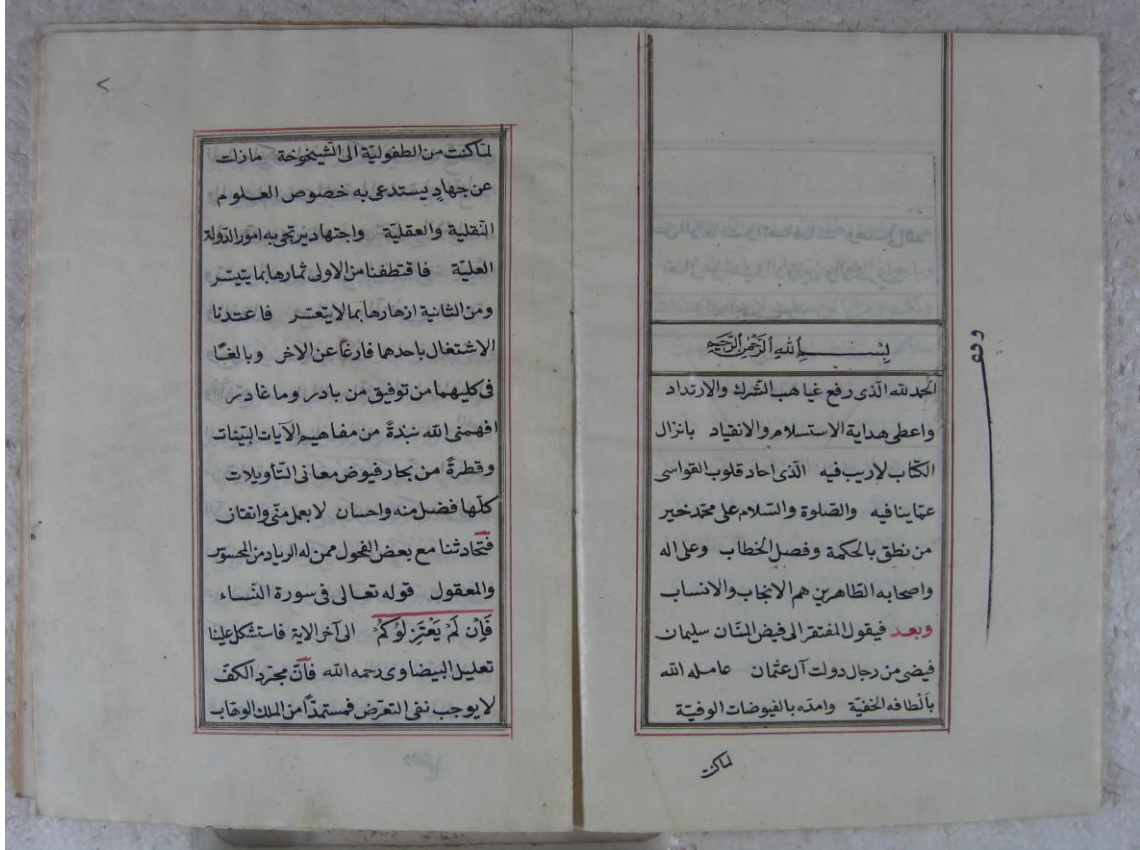 بسم الله الرحمن الرحيم
الحمد لله الّذى رفع غياهب الشّرك والارتداد
واعطى هداية الاستسلام والانقياد بانزال
الكتاب لاريب فيه الّذى احاد قلوب القواسى
عمّا ينافيه والصّلوة والسّلام على محمّد خير
من نطق بالحكمة وفصل الخطاب وعلى اله
واصحابه الطّاهرين هم الانجاب والانساب
وبعد فيقول المفتقر الى فيض المنّان سليمان
فيضى من رجال دولت آل عثمان عامله الله
بألطافه الخفيّة وامدّه بالفيوضات الوفيّة
لما كنت
لمّا كنت من الطفوليّة الى الشّيخوخة مازلت
عن جهادٍ يستدعى به خصوص العلوم
النّقلية والعقليّة واجتهاد يرتجى به امور الدّولة
العليّة فاقتطفنا من الاولى ثمارها بما يتيسّر
ومن الثانية ازهارها بما لا يتعسّر فاعتدنا
الاشتغال باحدهما فارغًا عن الاخر وبالغًا
فى كليهما من توفيق من بادر وما غادر
افهمنى الله نبذةً من مفاهيم الآيات البيّنات
وقطرةً من بحار فيوض معانى التّأويلات
كلّها فضل منه واحسان لا بعمل منّى واتقان
فتحادثنا مع بعض الفحول ممن له الرياد من المحسوس
والمعقول قوله تعالى فى سورة النّساء
فَاِنْ لَمْ يَعْتَزِلُوكُمْ الى آخر الاية فاستشكل علينا
تعليل البيضاوى رحمه الله فأنّ مجرّد الكفّ
لا يوجب نفى التعرّض فمستمدًّا من الملك الوهّاب
٧